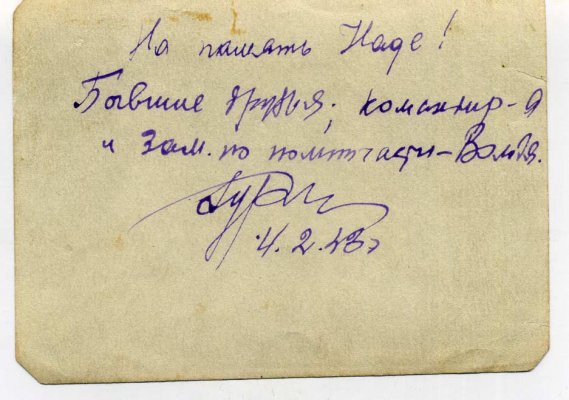 На память Наде!
Бывшие друзья; командир-я
и Зам. по политчасти-Володя.
4.2.43г